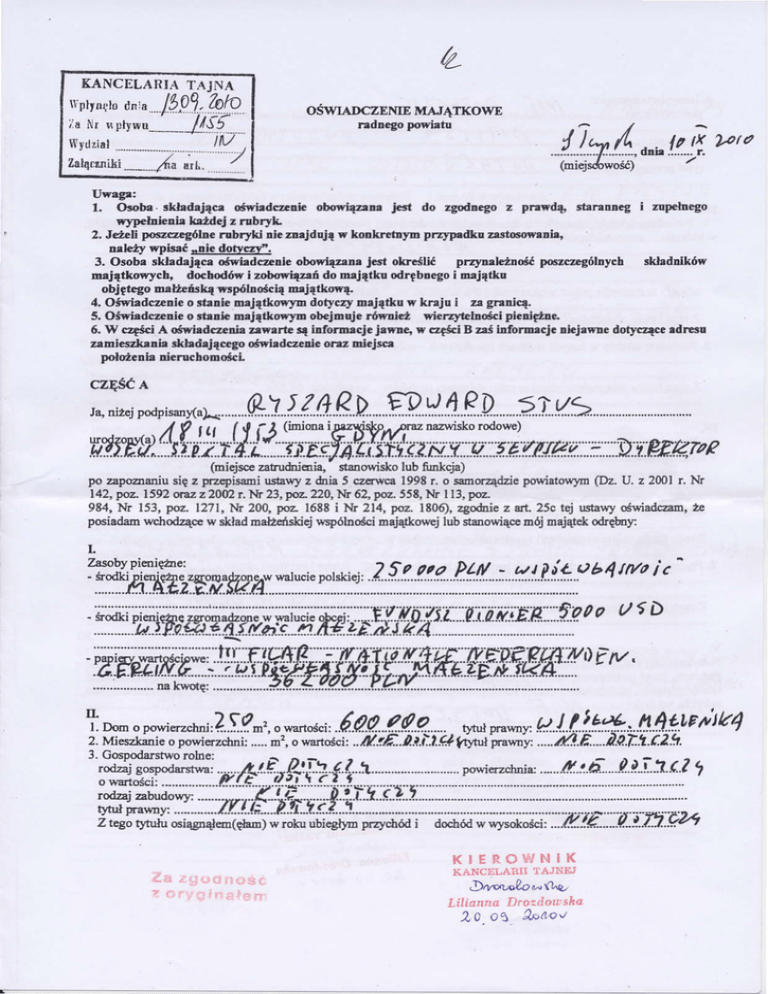 KANCELARIA TAJNA
Wpłynęło dnia 13.09.2010
Za Nr wpływu 1155
Wydział IV
Załączniki / na ark.
OŚWIADCZENIE MAJĄTKOWE
radnego powiatu
Słupsk, dnia 10 IX 2010 r.
(miejscowość)
Uwaga:
1. Osoba składająca oświadczenie obowiązana jest do zgodnego z prawdą, staranneg i zupełnego
wypełnienia każdej z rubryk.
2. Jeżeli poszczególne rubryki nie znajdują w konkretnym przypadku zastosowania,
należy wpisać „nie dotyczy”.
3. Osoba składająca oświadczenie obowiązana jest określić przynależność poszczególnych składników
majątkowych, dochodów i zobowiązań do majątku odrębnego i majątku
objętego małżeńską wspólnością majątkową.
4. Oświadczenie o stanie majątkowym dotyczy majątku w kraju i za granicą.
5. Oświadczenie o stanie majątkowym obejmuje również wierzytelności pieniężne.
6. W części A oświadczenia zawarte są informacje jawne, w części B zaś informacje niejawne dotyczące adresu
zamieszkania składającego oświadczenie oraz miejsca
położenia nieruchomości.
CZĘŚĆ A
Ja, niżej podpisany(a), RYSZARD EDWARD STUS
(imiona i nazwisko oraz nazwisko rodowe)
urodzony(a) 18 1953 GDYNI
WOJEW. SZPITAL SPECJALISTYCZNY W SŁUPSKU - DYREKTOR
(miejsce zatrudnienia, stanowisko lub funkcja)
po zapoznaniu się z przepisami ustawy z dnia 5 czerwca 1998 r. o samorządzie powiatowym (Dz. U. z 2001 r. Nr
142, poz. 1592 oraz z 2002 r. Nr 23, poz. 220, Nr 62, poz. 558, Nr 113, poz.
984, Nr 153, poz. 1271, Nr 200, poz. 1688 i Nr 214, poz. 1806), zgodnie z art. 25c tej ustawy oświadczam, że
posiadam wchodzące w skład małżeńskiej wspólności majątkowej lub stanowiące mój majątek odrębny:
I.
Zasoby pieniężne:
- środki pieniężne zgromadzone w walucie polskiej: 250 000 PLN - WSPÓŁWŁASNOŚĆ
MAŁŻEŃSKA
- środki pieniężne zgromadzone w walucie obcej: FUNDUSZ PIONIER 5000 USD
WSPÓŁWŁASNOŚĆ MAŁŻEŃSKA
- papiery wartościowe: III FILAR - NATIONALE NEDERLANDEN.
GERLING - WSPÓŁWŁASNOŚĆ MAŁŻEŃSKA
na kwotę: 362 000 PLN
II.
1. Dom o powierzchni: 250 m², o wartości: 600 000 tytuł prawny: WSPÓŁWŁ. MAŁŻEŃSKA
2. Mieszkanie o powierzchni: ..... m², o wartości: NIE DOTYCZY tytuł prawny: NIE DOTYCZY
3. Gospodarstwo rolne:
rodzaj gospodarstwa: NIE DOTYCZY powierzchnia: NIE DOTYCZY
o wartości: NIE DOTYCZY
rodzaj zabudowy: NIE DOTYCZY
tytuł prawny: NIE DOTYCZY
Z tego tytułu osiągnąłem(ęłam) w roku ubiegłym przychód i dochód w wysokości: NIE DOTYCZY
Za zgodność
z oryginałem
KIEROWNIK
KANCELARII TAJNEJ
Drozdowska
Lilianna Drozdowska
20.09.2010r